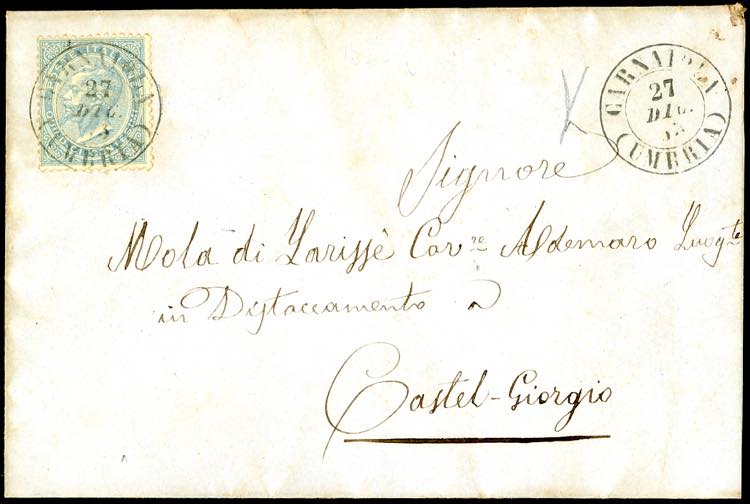 CARNAIOLA
27
DIC.
(UMBRIA)
CARNAIOLA
27
DIC.
(UMBRIA)
Signore
Mola di Larissè Cav.re Aldemaro Luog.te
in Distaccamento a
Castel-Giorgio